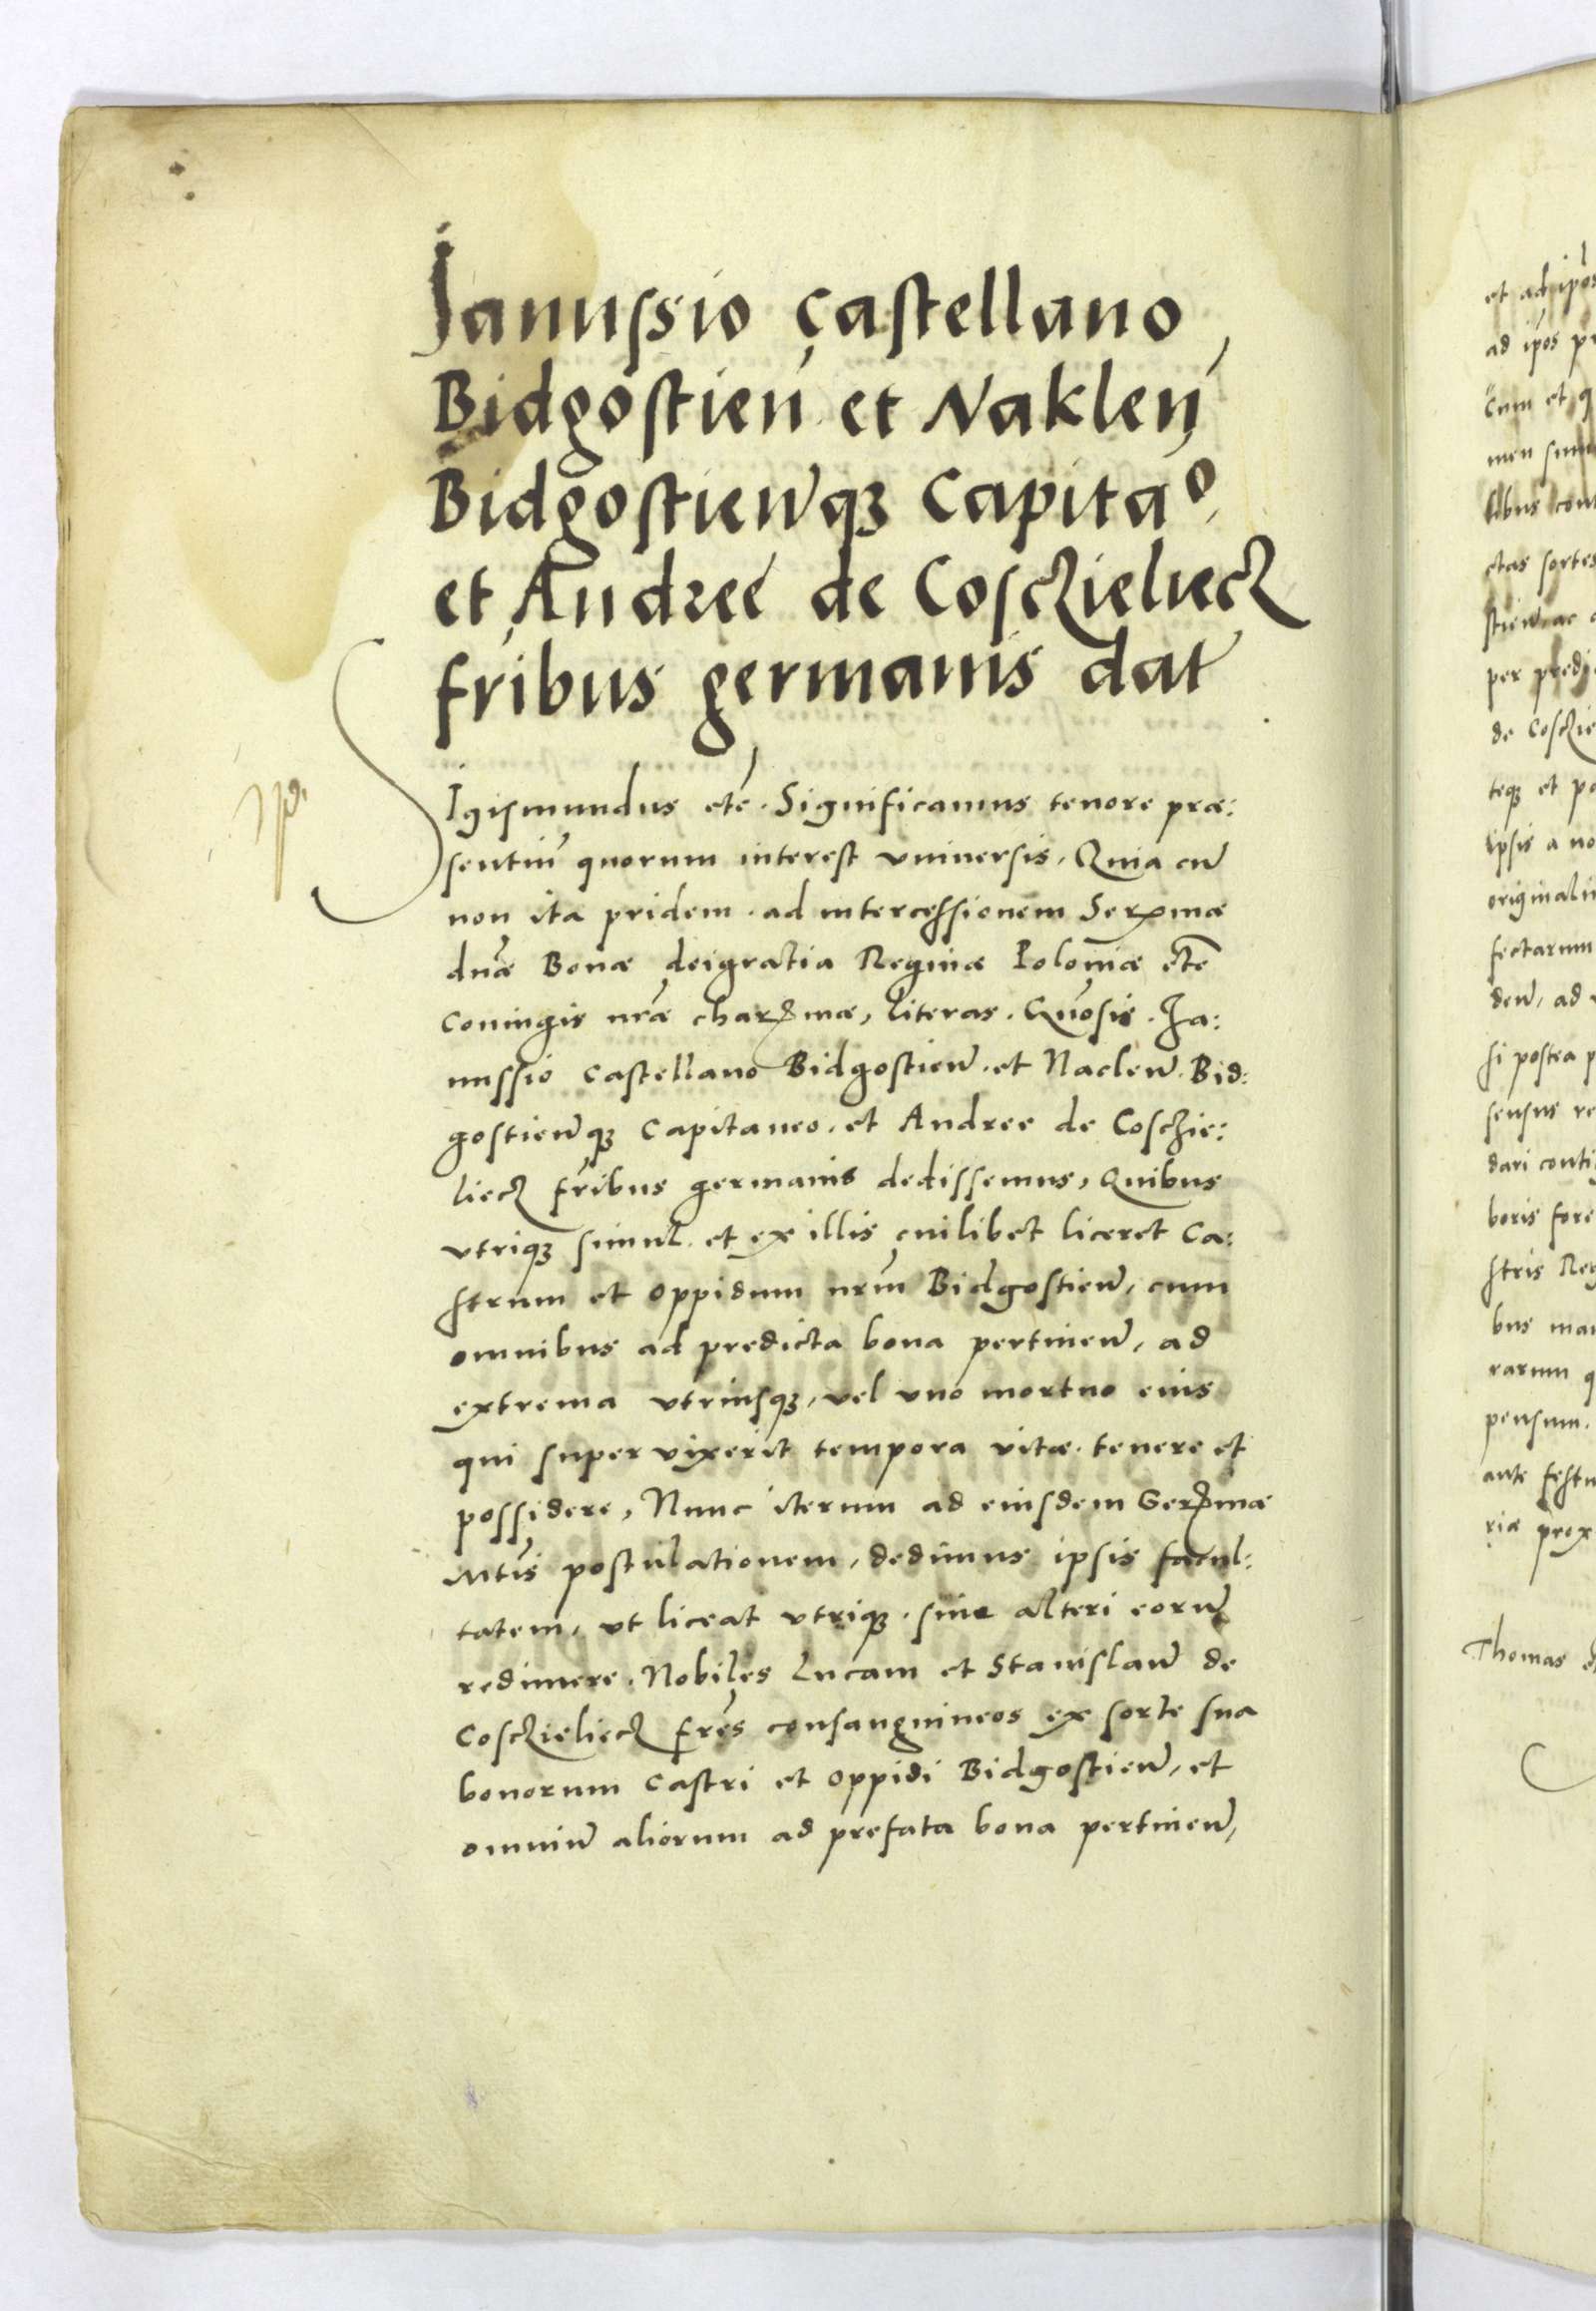 Janussio castellano
Bidgostien̄ et Naklen̄
Bidgostien̄qꝫ Capita⁰,
et Andreę de Cosczieliecz
fr̄ibus germanis dat̄
Sigismundus etc̄. Significamus tenore præ:
sentiū quorum interest vniuersis, Quia cū
non ita pridem. ad intercessionem Serᵐᵐæ
dn̄æ Bonæ deigratia Reginæ Poloniæ etc̄
coniugis nr̄æ charᵐᵐæ, literas. Gn̄osis. Ja:
nussio castellano Bidgostien̄. et Naclen̄. Bid:
gostien̄qꝫ Capitaneo. et Andree de Cosczie:
liecz fr̄ibus germanis dedissemus, Quibus
vtriqꝫ simul. et ex illis cuilibet liceret Ca:
strum et oppidum nr̄m Bidgostien̄, cum
omnibus ad predicta bona pertinen̄, ad
extrema vtriusqꝫ, vel vno mortuo eius
qui superuixerit tempora vitæ. tenere et
possidere, Nunc iterum ad eiusdem Serᵐᵐæ
Mtīs postulationem, dedimus ipsis facul:
tatem, vt liceat vtriqꝫ. siue alteri eorū
redimere. Nobiles Lucam et Stanislaū de
Cosczieliecz fr̄es consanguineos ex sorte sua
bonorum castri et oppidi Bidgostien̄, et
omniū aliorum ad prefata bona pertinen̄,
et ad ip̄os
ad ip̄os
Cum et
men
ctas sortes
per
teqꝫ et
ipsis a
fectarum
den̄, ad
si postea
sensus
dari
boris fore
stris
bus
rarum
pensum.
ante
riæ prox
Thomas